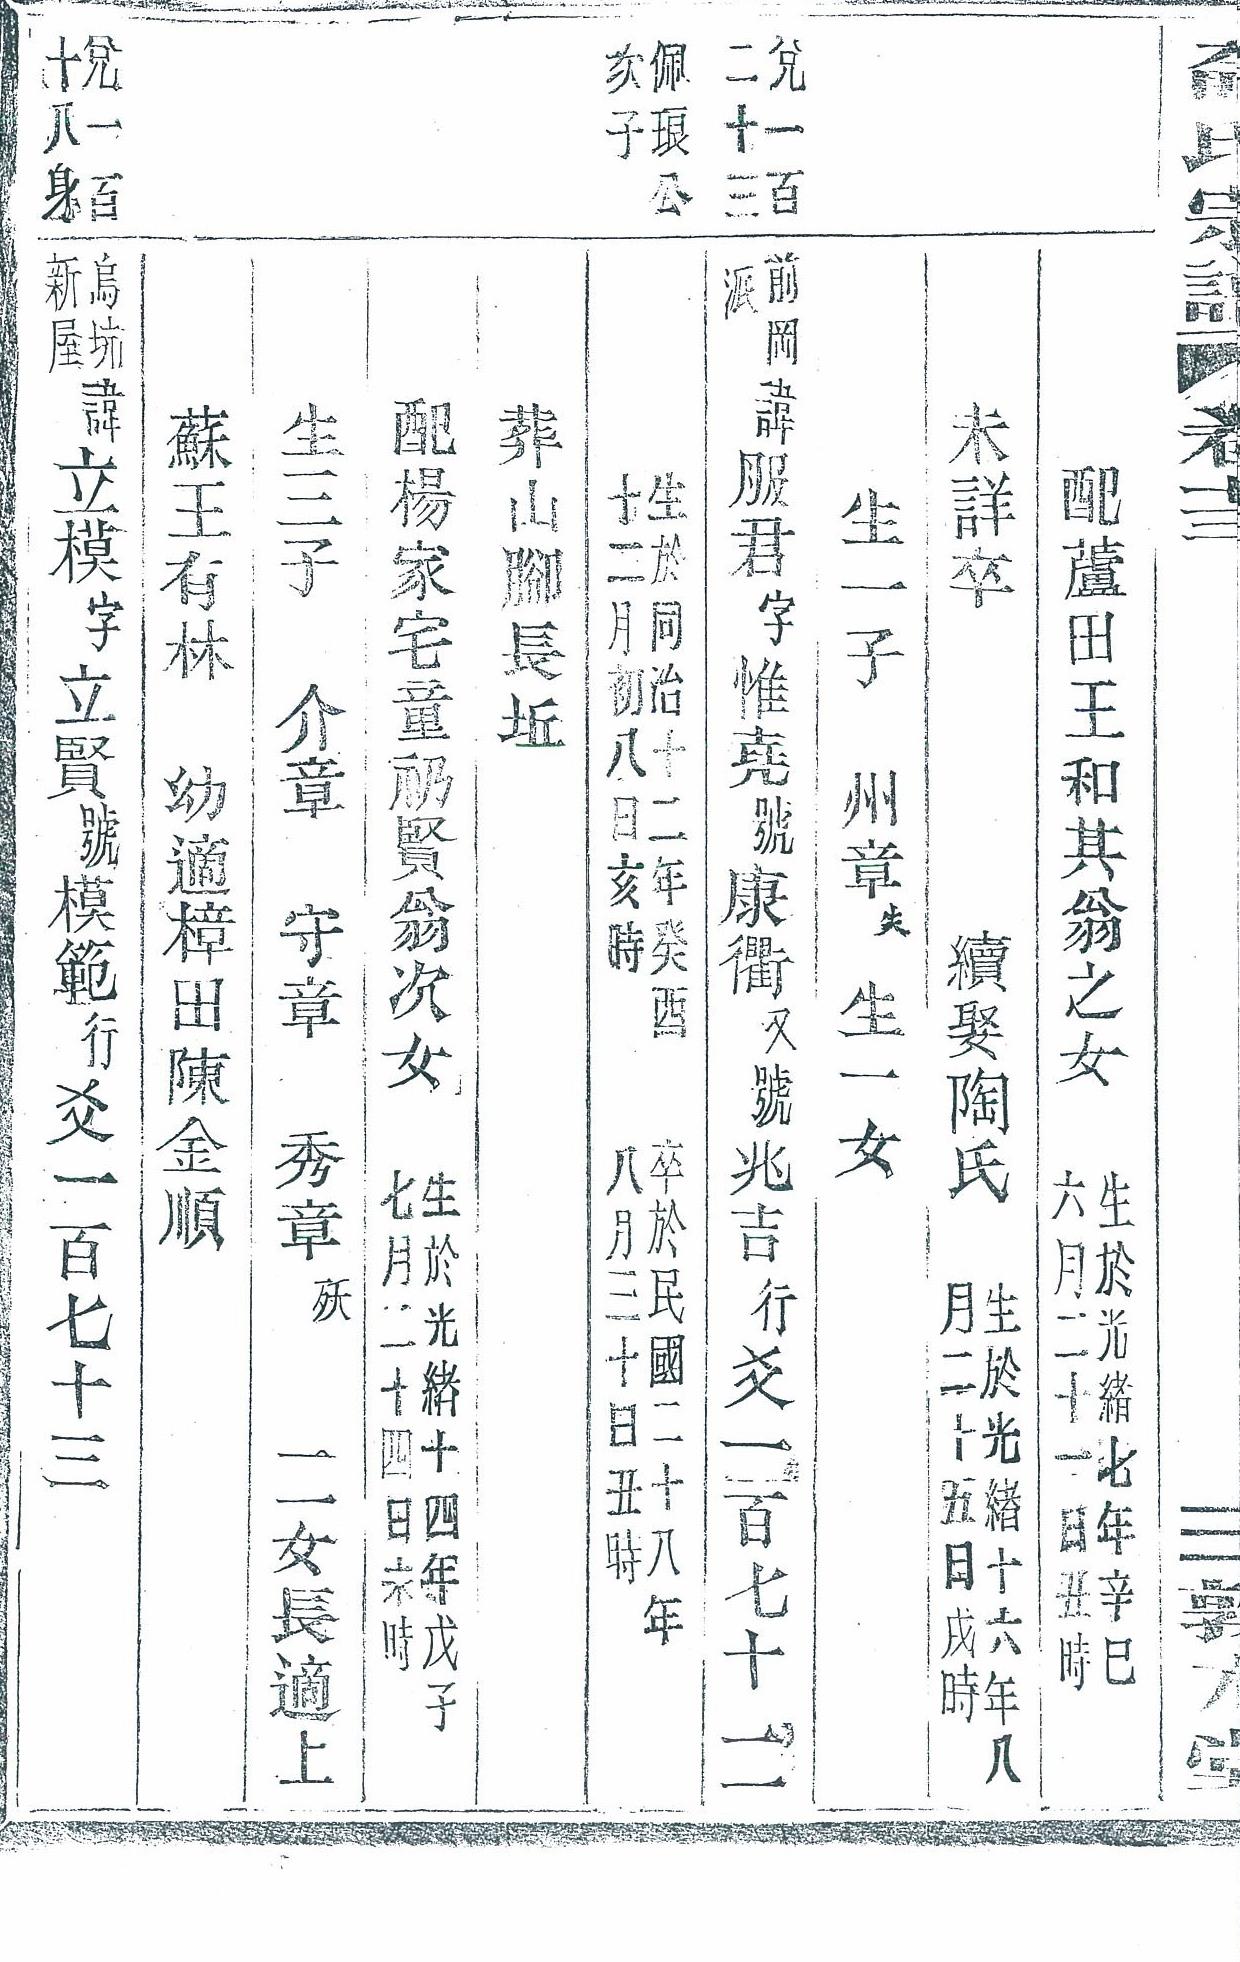 氏宗譜
卷十三
敦
堂
配蘆田王和其翁之女
生於光緒七年辛巳
六月二十一日丑時
未詳卒
續娶陶氏
生於光緒十六年八
月二十五日戌時
生一子　州章失　生一女
兌一百
二十三
前岡
派
諱服君字惟堯號康衢又號兆吉行爻一百七十二
佩琅公
次子
生於同治十二年癸酉
十二月初八日亥時
卒於民國二十八年
八月三十日丑時
葬山腳長坵
配楊家宅童礽賢翁次女
生於光緒十四年戊子
七月二十四日未時
生三子　介章　守章　秀章殀　二女長適上
蘇王有林　幼適樟田陳金順
兌一百
十八身
烏坑
新屋
諱立模字立賢號模範行爻一百七十三